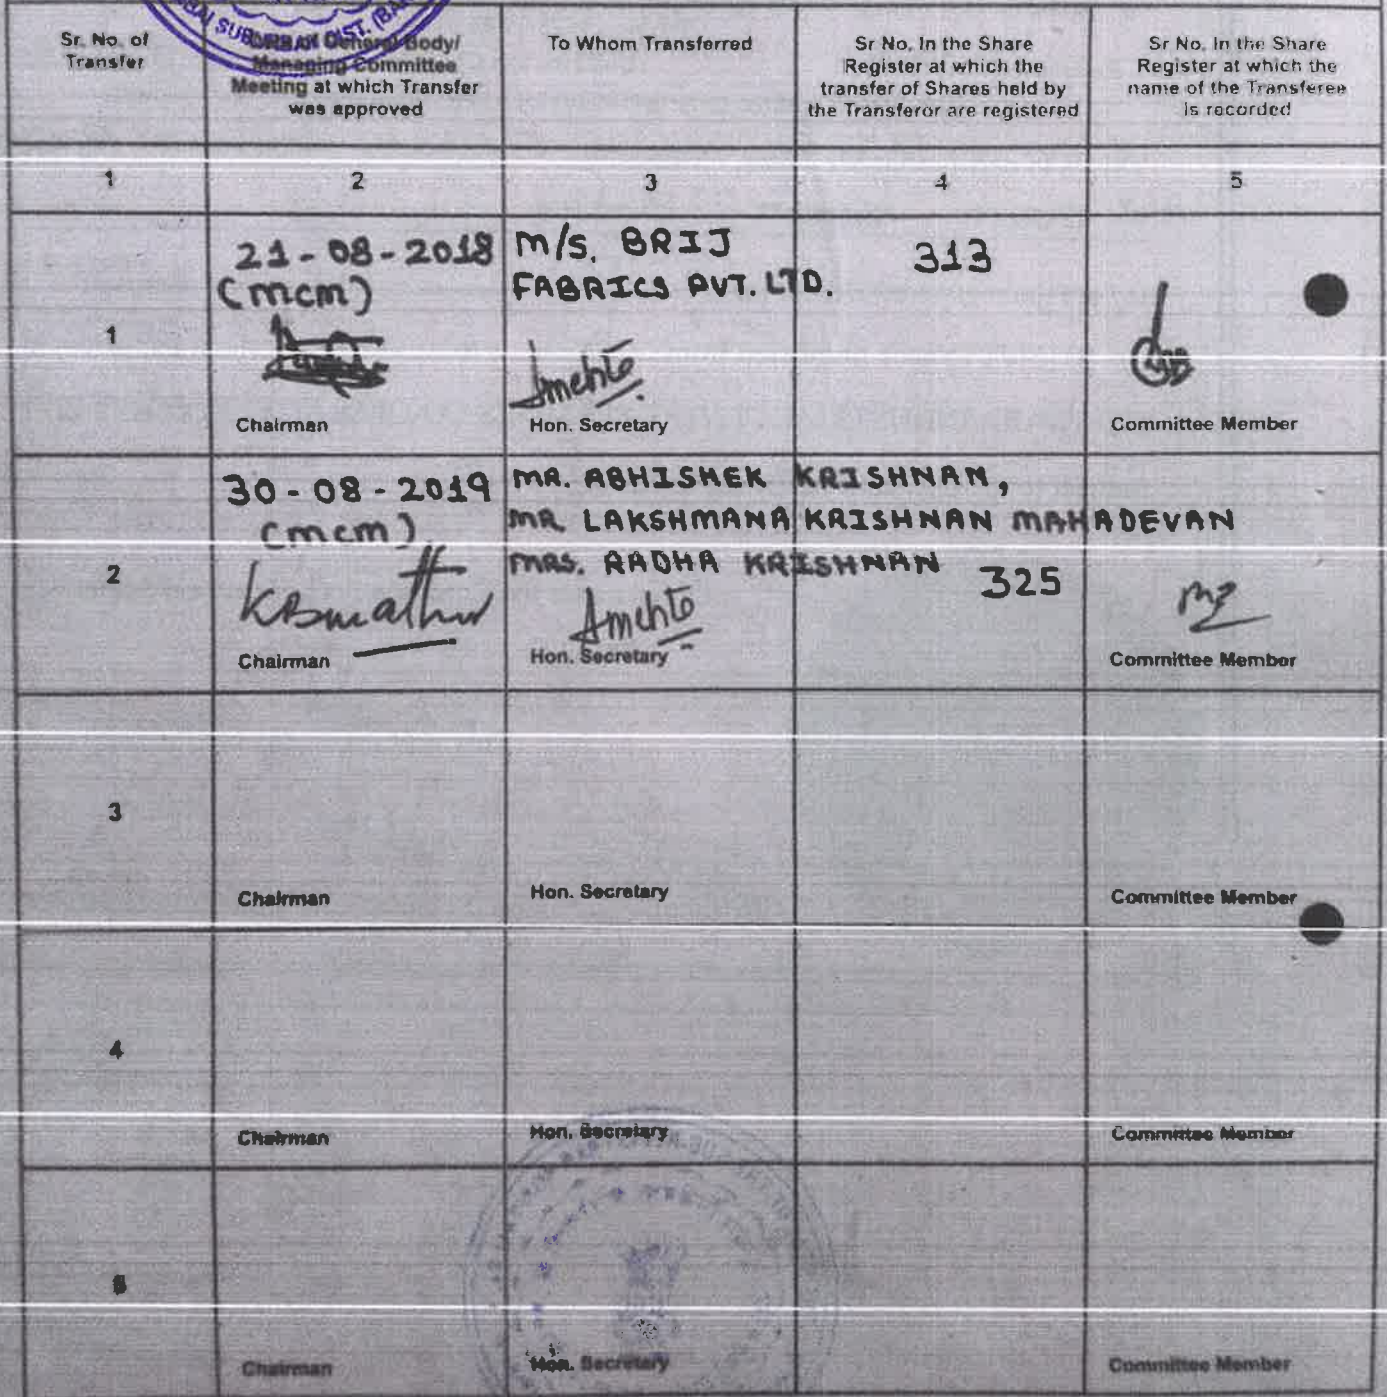 SUBURBAN DIST. (BA
Sr. No. of
Transfer
General Body/
Managing Committee
Meeting at which Transfer
was approved
To Whom Transferred
Sr No. In the Share
Register at which the
transfer of Shares held by
the Transferor are registered
Sr No. In the Share
Register at which the
name of the Transferee
is recorded
1
2
3
4
5
1
21-08-2018
(mcm)
Chairman
M/S. BRIJ
FABRICS PVT. LTD.
Amehta
Hon. Secretary
313
Committee Member
2
30-08-2019
(mcm)
KBmathur
Chairman
MR. ABHISHEK KRISHNAN,
MR LAKSHMANA KRISHNAN MAHADEVAN
MRS. RADHA KRISHNAN
Amehta
Hon. Secretary
325
Committee Member
3
Chairman
Hon. Secretary
Committee Member
4
Chairman
Hon. Secretary
Committee Member
5
Chairman
Hon. Secretary
Committee Member